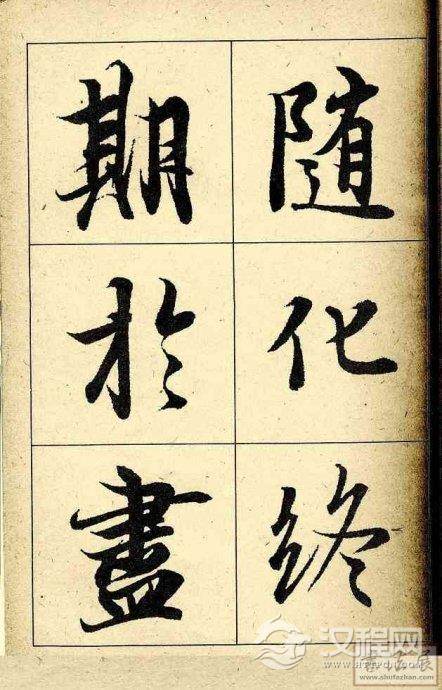 随化终
期於盡
汉程网
www.shufazhan.com